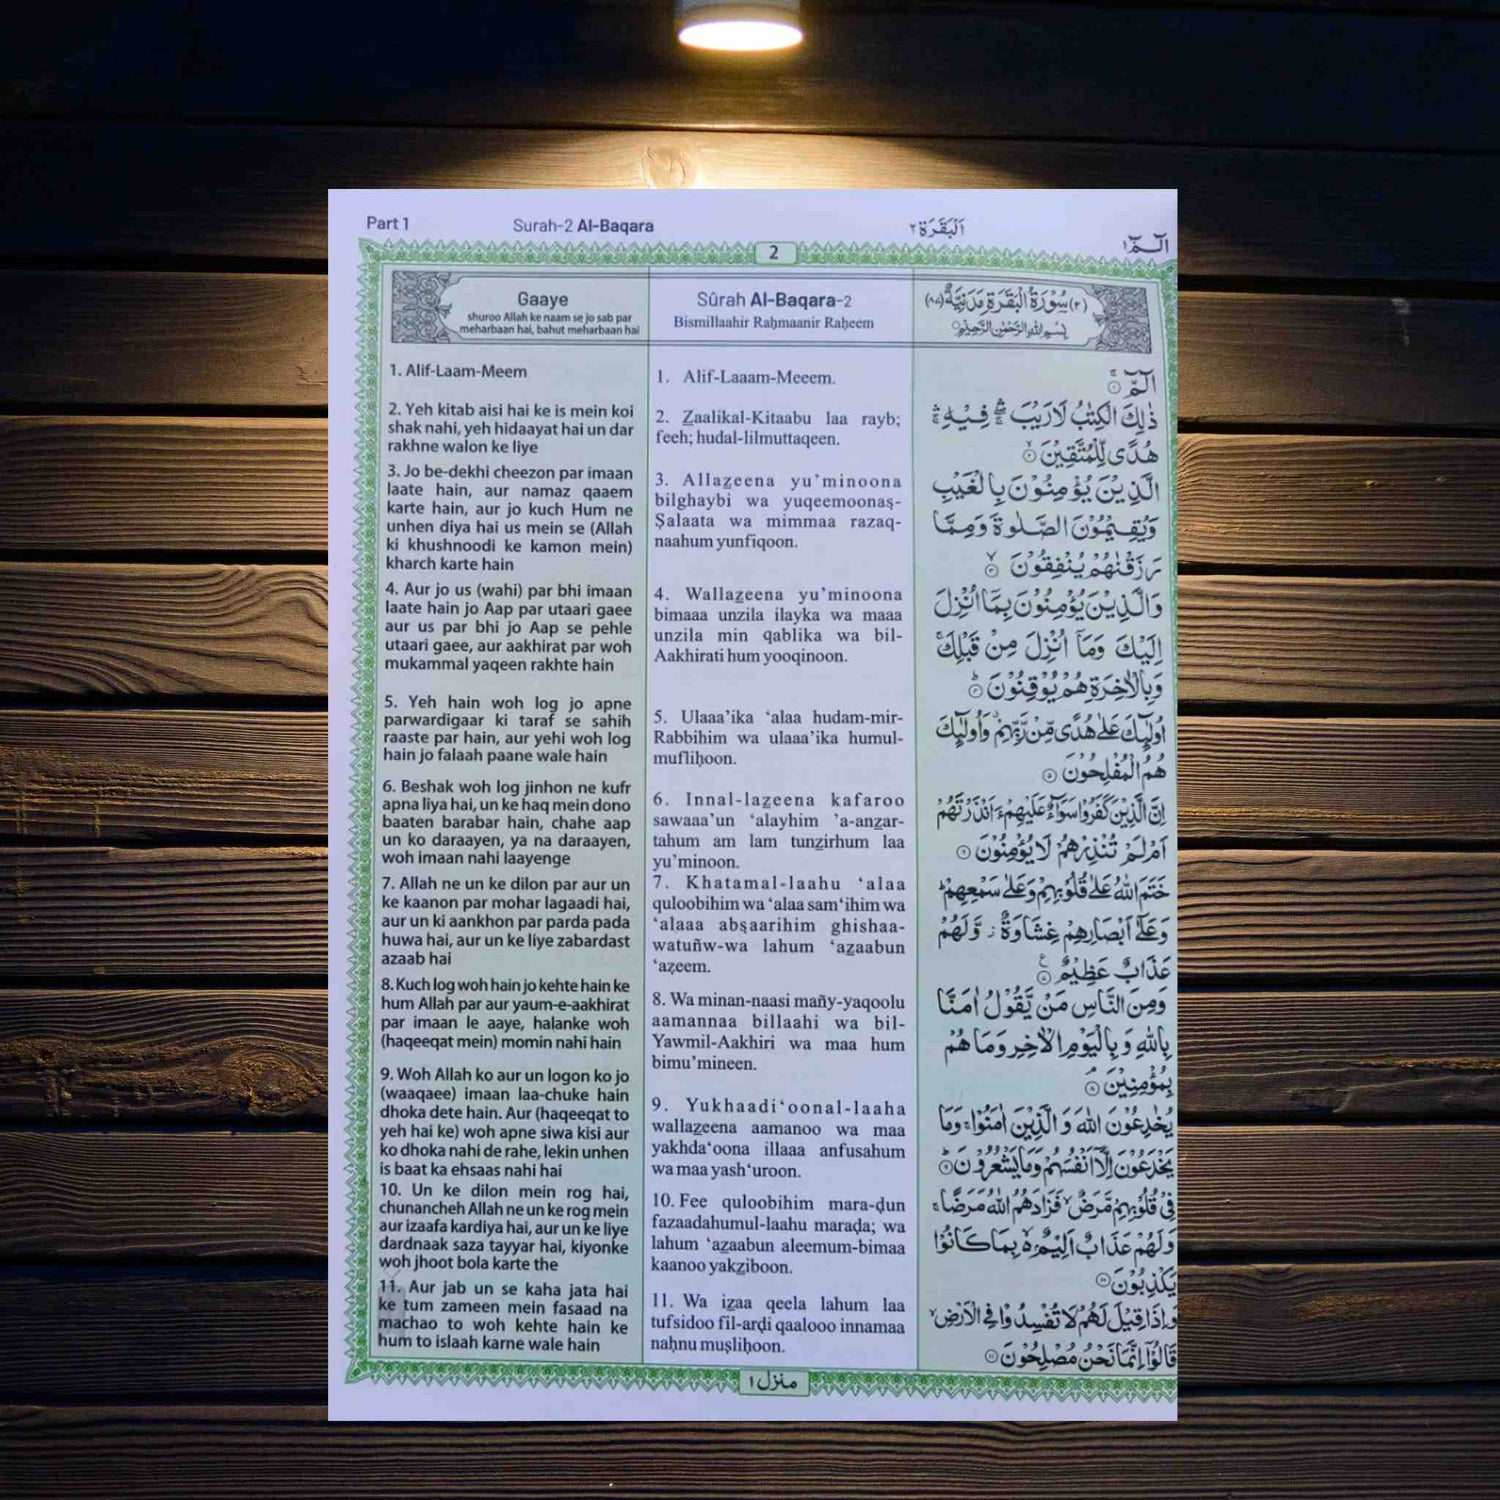 Part 1
Surah-2 Al-Baqara
اَلْبَقَرَة ٢
الٓمّٓ ١
2
Gaaye
shuroo Allah ke naam se jo sab par
meharbaan hai, bahut meharbaan hai
1. Alif-Laam-Meem
2. Yeh kitab aisi hai ke is mein koi
shak nahi, yeh hidaayat hai un dar
rakhne walon ke liye
3. Jo be-dekhi cheezon par imaan
laate hain, aur namaz qaaem
karte hain, aur jo kuch Hum ne
unhen diya hai us mein se (Allah
ki khushnoodi ke kamon mein)
kharch karte hain
4. Aur jo us (wahi) par bhi imaan
laate hain jo Aap par utaari gaee
aur us par bhi jo Aap se pehle
utaari gaee, aur aakhirat par woh
mukammal yaqeen rakhte hain
5. Yeh hain woh log jo apne
parwardigaar ki taraf se sahih
raaste par hain, aur yehi woh log
hain jo falaah paane wale hain
6. Beshak woh log jinhon ne kufr
apna liya hai, un ke haq mein dono
baaten barabar hain, chahe aap
un ko daraayen, ya na daraayen,
woh imaan nahi laayenge
7. Allah ne un ke dilon par aur un
ke kaanon par mohar lagaadi hai,
aur un ki aankhon par parda pada
huwa hai, aur un ke liye zabardast
azaab hai
8. Kuch log woh hain jo kehte hain ke
hum Allah par aur yaum-e-aakhirat
par imaan le aaye, halanke woh
(haqeeqat mein) momin nahi hain
9. Woh Allah ko aur un logon ko jo
(waaqaee) imaan laa-chuke hain
dhoka dete hain. Aur (haqeeqat to
yeh hai ke) woh apne siwa kisi aur
ko dhoka nahi de rahe, lekin unhen
is baat ka ehsaas nahi hai
10. Un ke dilon mein rog hai,
chunancheh Allah ne un ke rog mein
aur izaafa kardiya hai, aur un ke liye
dardnaak saza tayyar hai, kiyonke
woh jhoot bola karte the
11. Aur jab un se kaha jata hai
ke tum zameen mein fasaad na
machao to woh kehte hain ke
hum to islaah karne wale hain
Sûrah Al-Baqara-2
Bismillaahir Raḥmaanir Raḥeem
1. Alif-Laaam-Meeem.
2. Z̲aalikal-Kitaabu laa rayb;
feeh; hudal-lilmuttaqeen.
3. Allaz̲eena yu’minoona
bilghaybi wa yuqeemoonaṣ-
Ṣalaata wa mimmaa razaq-
naahum yunfiqoon.
4. Wallaz̲eena yu’minoona
bimaaa unzila ilayka wa maaa
unzila min qablika wa bil-
Aakhirati hum yooqinoon.
5. Ulaaa’ika ‘alaa hudam-mir-
Rabbihim wa ulaaa’ika humul-
mufliḥoon.
6. Innal-laz̲eena kafaroo
sawaaa’un ‘alayhim ’a-anz̲ar-
tahum am lam tunz̲irhum laa
yu’minoon.
7. Khatamal-laahu ‘alaa
quloobihim wa ‘alaa sam‘ihim wa
‘alaaa abṣaarihim ghishaa-
watuñw-wa lahum ‘az̲aabun
‘aẓeem.
8. Wa minan-naasi mañy-yaqoolu
aamannaa billaahi wa bil-
Yawmil-Aakhiri wa maa hum
bimu’mineen.
9. Yukhaadi‘oonal-laaha
wallaz̲eena aamanoo wa maa
yakhda‘oona illaaa anfusahum
wa maa yash‘uroon.
10. Fee quloobihim mara-ḍun
fazaadahumul-laahu maraḍa; wa
lahum ‘az̲aabun aleemum-bimaa
kaanoo yakz̲iboon.
11. Wa iz̲aa qeela lahum laa
tufsidoo fil-arḍi qaalooo innamaa
naḥnu muṣliḥoon.
(٢) سُوْرَةُ الْبَقَرَةِ مَدَنِيَّةٌ (٨٧)
بِسْمِ اللهِ الرَّحْمٰنِ الرَّحِيْمِ
الٓمّٓ ۚ ١
ذٰلِكَ الْكِتٰبُ لَا رَيْبَ ۛ فِيْهِ ۛ
هُدًى لِّلْمُتَّقِيْنَ ۙ ٢
الَّذِيْنَ يُؤْمِنُوْنَ بِالْغَيْبِ
وَيُقِيْمُوْنَ الصَّلٰوةَ وَمِمَّا
رَزَقْنٰهُمْ يُنْفِقُوْنَ ۙ ٣
وَالَّذِيْنَ يُؤْمِنُوْنَ بِمَآ اُنْزِلَ
اِلَيْكَ وَمَآ اُنْزِلَ مِنْ قَبْلِكَ ۚ
وَبِالْاٰخِرَةِ هُمْ يُوْقِنُوْنَ ؕ ٤
اُولٰٓئِكَ عَلٰى هُدًى مِّنْ رَّبِّهِمْ ۗ وَاُولٰٓئِكَ
هُمُ الْمُفْلِحُوْنَ ٥
اِنَّ الَّذِيْنَ كَفَرُوْا سَوَآءٌ عَلَيْهِمْ ءَاَنْذَرْتَهُمْ
اَمْ لَمْ تُنْذِرْهُمْ لَا يُؤْمِنُوْنَ ٦
خَتَمَ اللهُ عَلٰى قُلُوْبِهِمْ وَعَلٰى سَمْعِهِمْ ؕ
وَعَلٰٓى اَبْصَارِهِمْ غِشَاوَةٌ ز وَّلَهُمْ
عَذَابٌ عَظِيْمٌ ٧
وَمِنَ النَّاسِ مَنْ يَّقُوْلُ اٰمَنَّا
بِاللهِ وَبِالْيَوْمِ الْاٰخِرِ وَمَا هُمْ
بِمُؤْمِنِيْنَ ۘ ٨
يُخٰدِعُوْنَ اللهَ وَالَّذِيْنَ اٰمَنُوْا ۚ وَمَا
يَخْدَعُوْنَ اِلَّآ اَنْفُسَهُمْ وَمَا يَشْعُرُوْنَ ؕ ٩
فِيْ قُلُوْبِهِمْ مَّرَضٌ ۙ فَزَادَهُمُ اللهُ مَرَضًا ۚ
وَلَهُمْ عَذَابٌ اَلِيْمٌ ۢ ۙ بِمَا كَانُوْا
يَكْذِبُوْنَ ١٠
وَاِذَا قِيْلَ لَهُمْ لَا تُفْسِدُوْا فِي الْاَرْضِ ۙ
قَالُوْٓا اِنَّمَا نَحْنُ مُصْلِحُوْنَ ١١
منزل ١